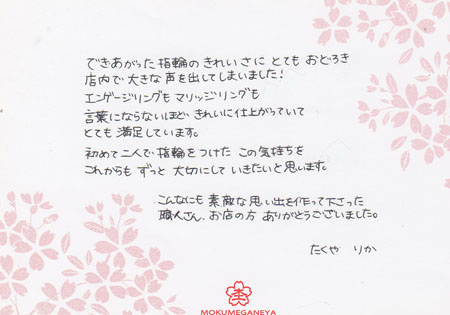 できあがった指輪のきれいさに とても おどろき
店内で大きな声を出してしまいました!
エンゲージリングも マリッジリングも
言葉にならないほど、きれいに仕上がっていて
とても 満足しています。
初めて二人で指輪をつけた この気持ちを
これからも ずっと 大切にして いきたいと思います。
こんなにも 素敵な 思い出を作って下さった
職人さん、お店の方 ありがとうございました。
たくや りか
木
MOKUMEGANEYA